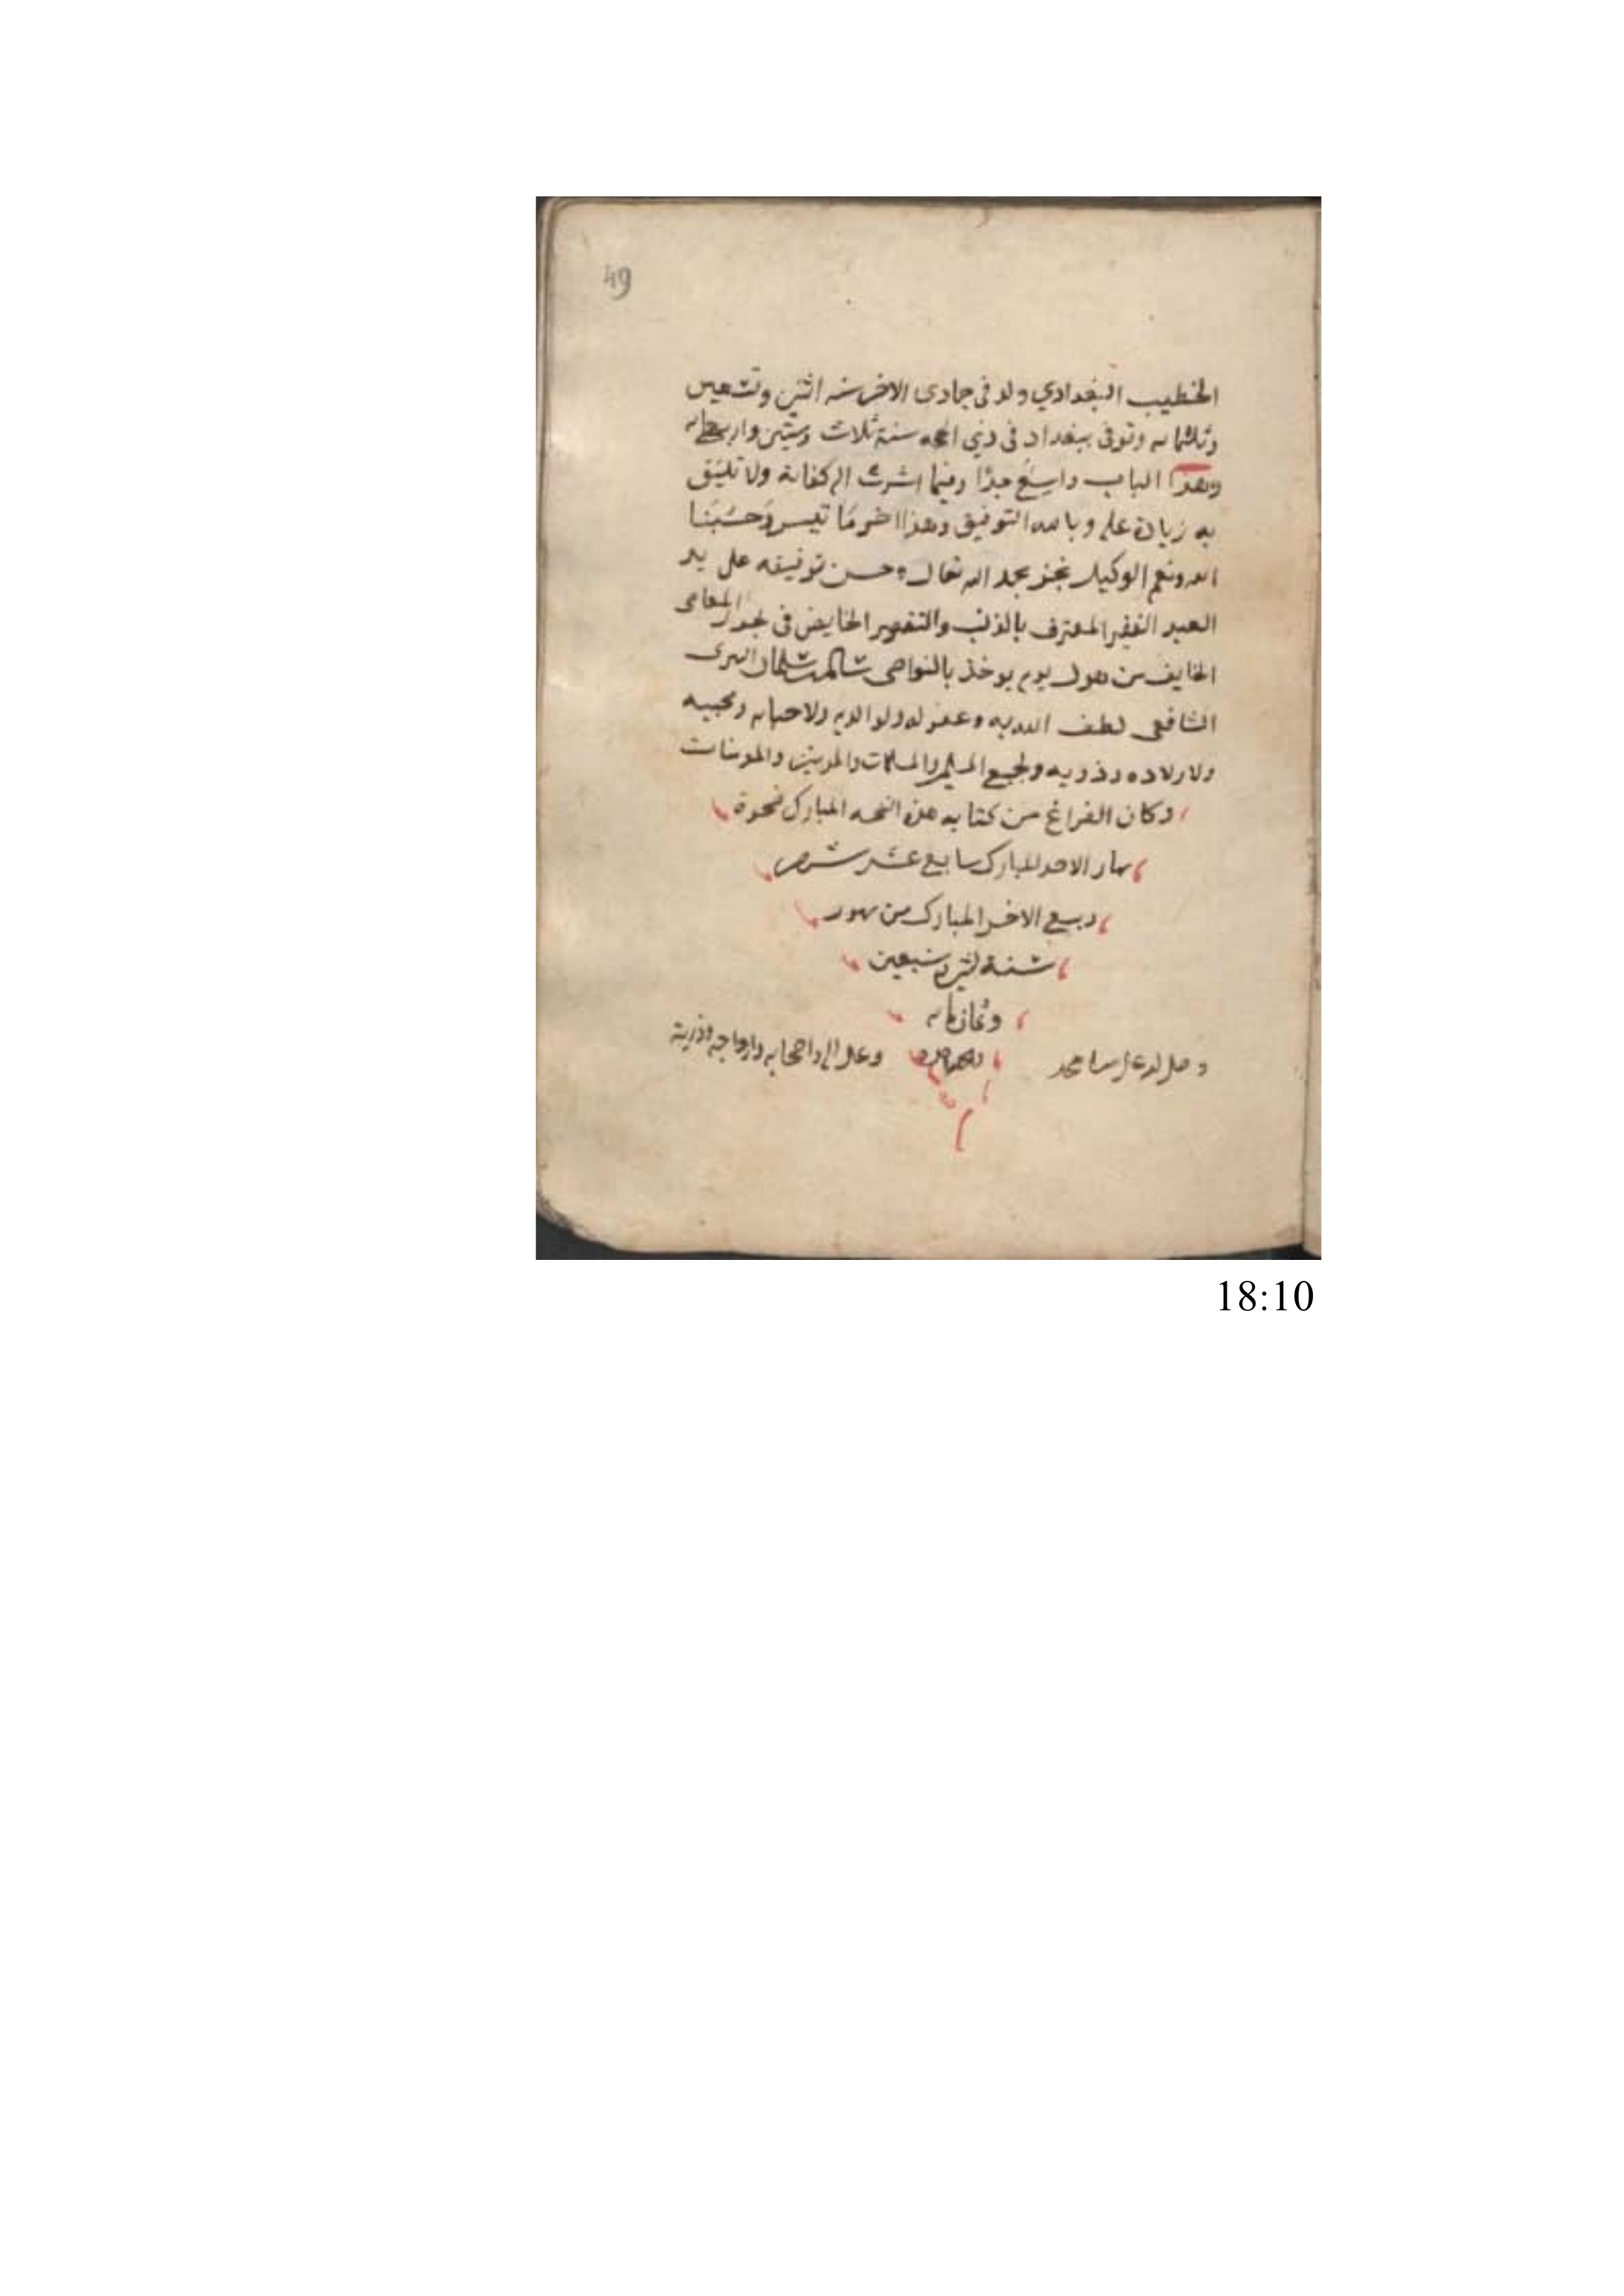 49
الخطيب البغدادي ولد في جمادى الاخر سنه اثنتين وتسعين
وثلثمايه وتوفى ببغداد في ذي الحجه سنة ثلاث وستين واربعمايه
وهذا الباب واسع جدًا وفيما اشرت اليه كفاية ولا تليق
به زيادة على وبالله التوفيق وهذا اخر مَا تيسر وَحسْبَنا
الله ونعم الوكيل نجز بحمد الله تعالى وحسن توفيقه على يد
العبد الفقير المعترف بالذنب والتقصير الخايض في بحور المعاصى
الخايف من هول يوم يوخذ بالنواصى سليمان
الشافعى لطف الله به وغفر له ولوالديه ولاحبابه ومحبيه
ولاولاده وذريه ولجميع المسلمين والمسلمات والمومنين والمومنات
وكان الفراغ من كتابه هذه النسخه المباركة ضحوة
نهار الاحد المبارك سابع عشر شهر
ربيع الاخر المبارك من شهور
سنة وسبعين
وثمان مايه
وصلى الله على سيدنا محمد وعلى اله واصحابه وازواجه وذريته
18:10